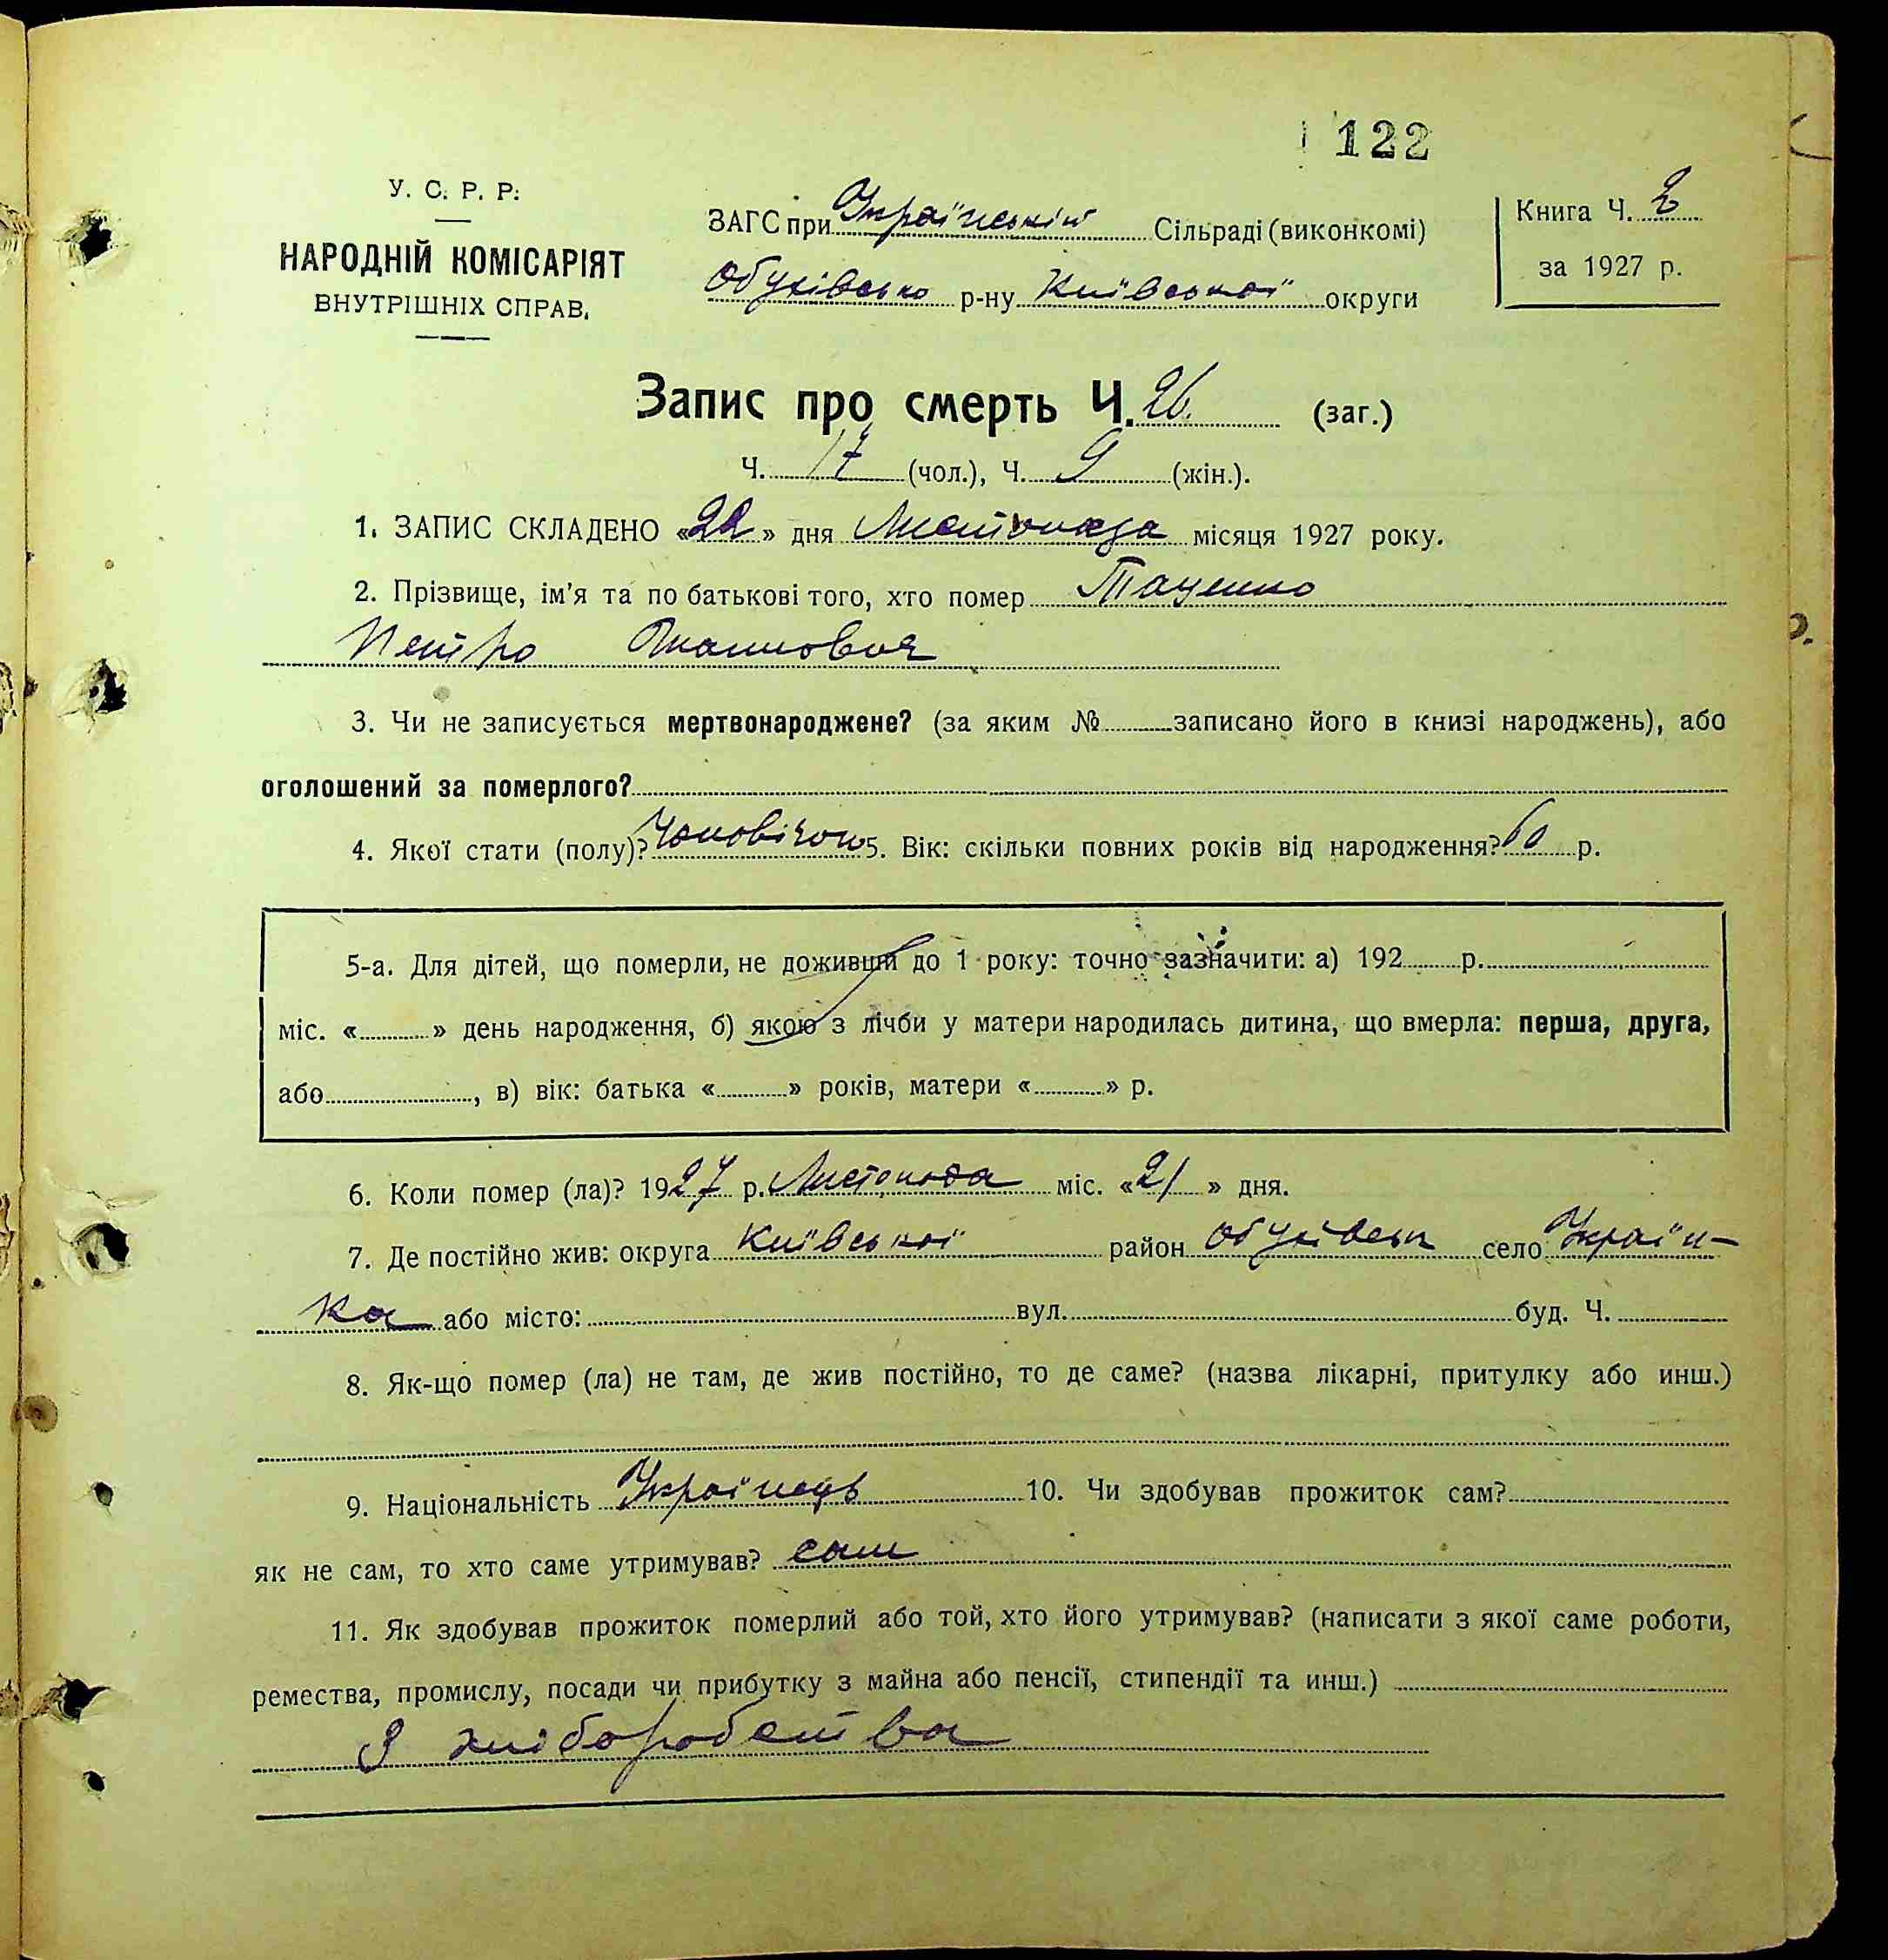 122
У. С. Р. Р.
НАРОДНІЙ КОМІСАРІЯТ
ВНУТРІШНІХ СПРАВ.
ЗАГС при Українській Сільраді (виконкомі)
Обухівсько р-ну Київської округи
Книга Ч. 2
за 1927 р.
Запис про смерть Ч. 26. (заг.)
Ч. 17 (чол.), Ч. 9 (жін.).
1. ЗАПИС СКЛАДЕНО «22» дня Листопада місяця 1927 року.
2. Прізвище, ім'я та по батькові того, хто помер Таценко
Петро
3. Чи не записується мертвонароджене? (за яким № записано його в книзі народжень), або
оголошений за померлого?
4. Якої стати (полу)? 5. Вік: скільки повних років від народження? 60 р.
5-а. Для дітей, що померли, не доживши до 1 року: точно зазначити: а) 192 р.
міс. « » день народження, б) якою з лічби у матери народилась дитина, що вмерла: перша, друга,
або , в) вік: батька « » років, матери « » р.
6. Коли помер (ла)? 1927 р. Листопада міс. «21» дня.
7. Де постійно жив: округа Київської район Обухівськ село Україн-
ка або місто: вул. буд. Ч.
8. Як-що помер (ла) не там, де жив постійно, то де саме? (назва лікарні, притулку або инш.)
9. Національність Українець 10. Чи здобував прожиток сам?
як не сам, то хто саме утримував? сам
11. Як здобував прожиток померлий або той, хто його утримував? (написати з якої саме роботи,
ремества, промислу, посади чи прибутку з майна або пенсії, стипендії та инш.)
З хліборобства